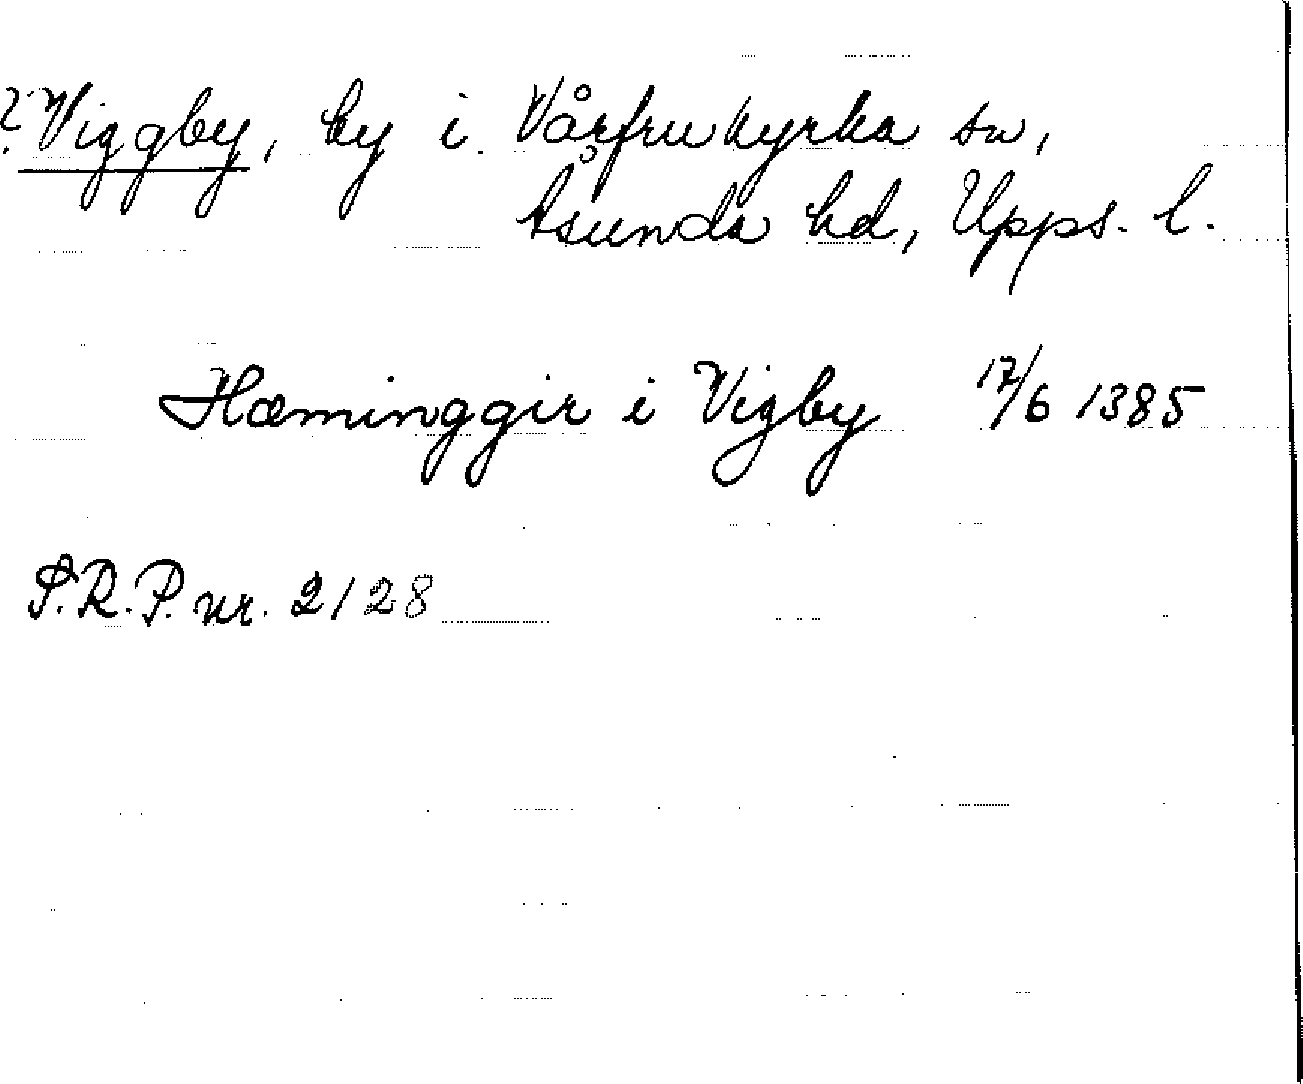 ? Viggby, by i Vårfrukyrka sn,
Åsunda hd, Upps. l.
Hæminggir i Vigby 17/6 1385
S.R.P. nr. 2128